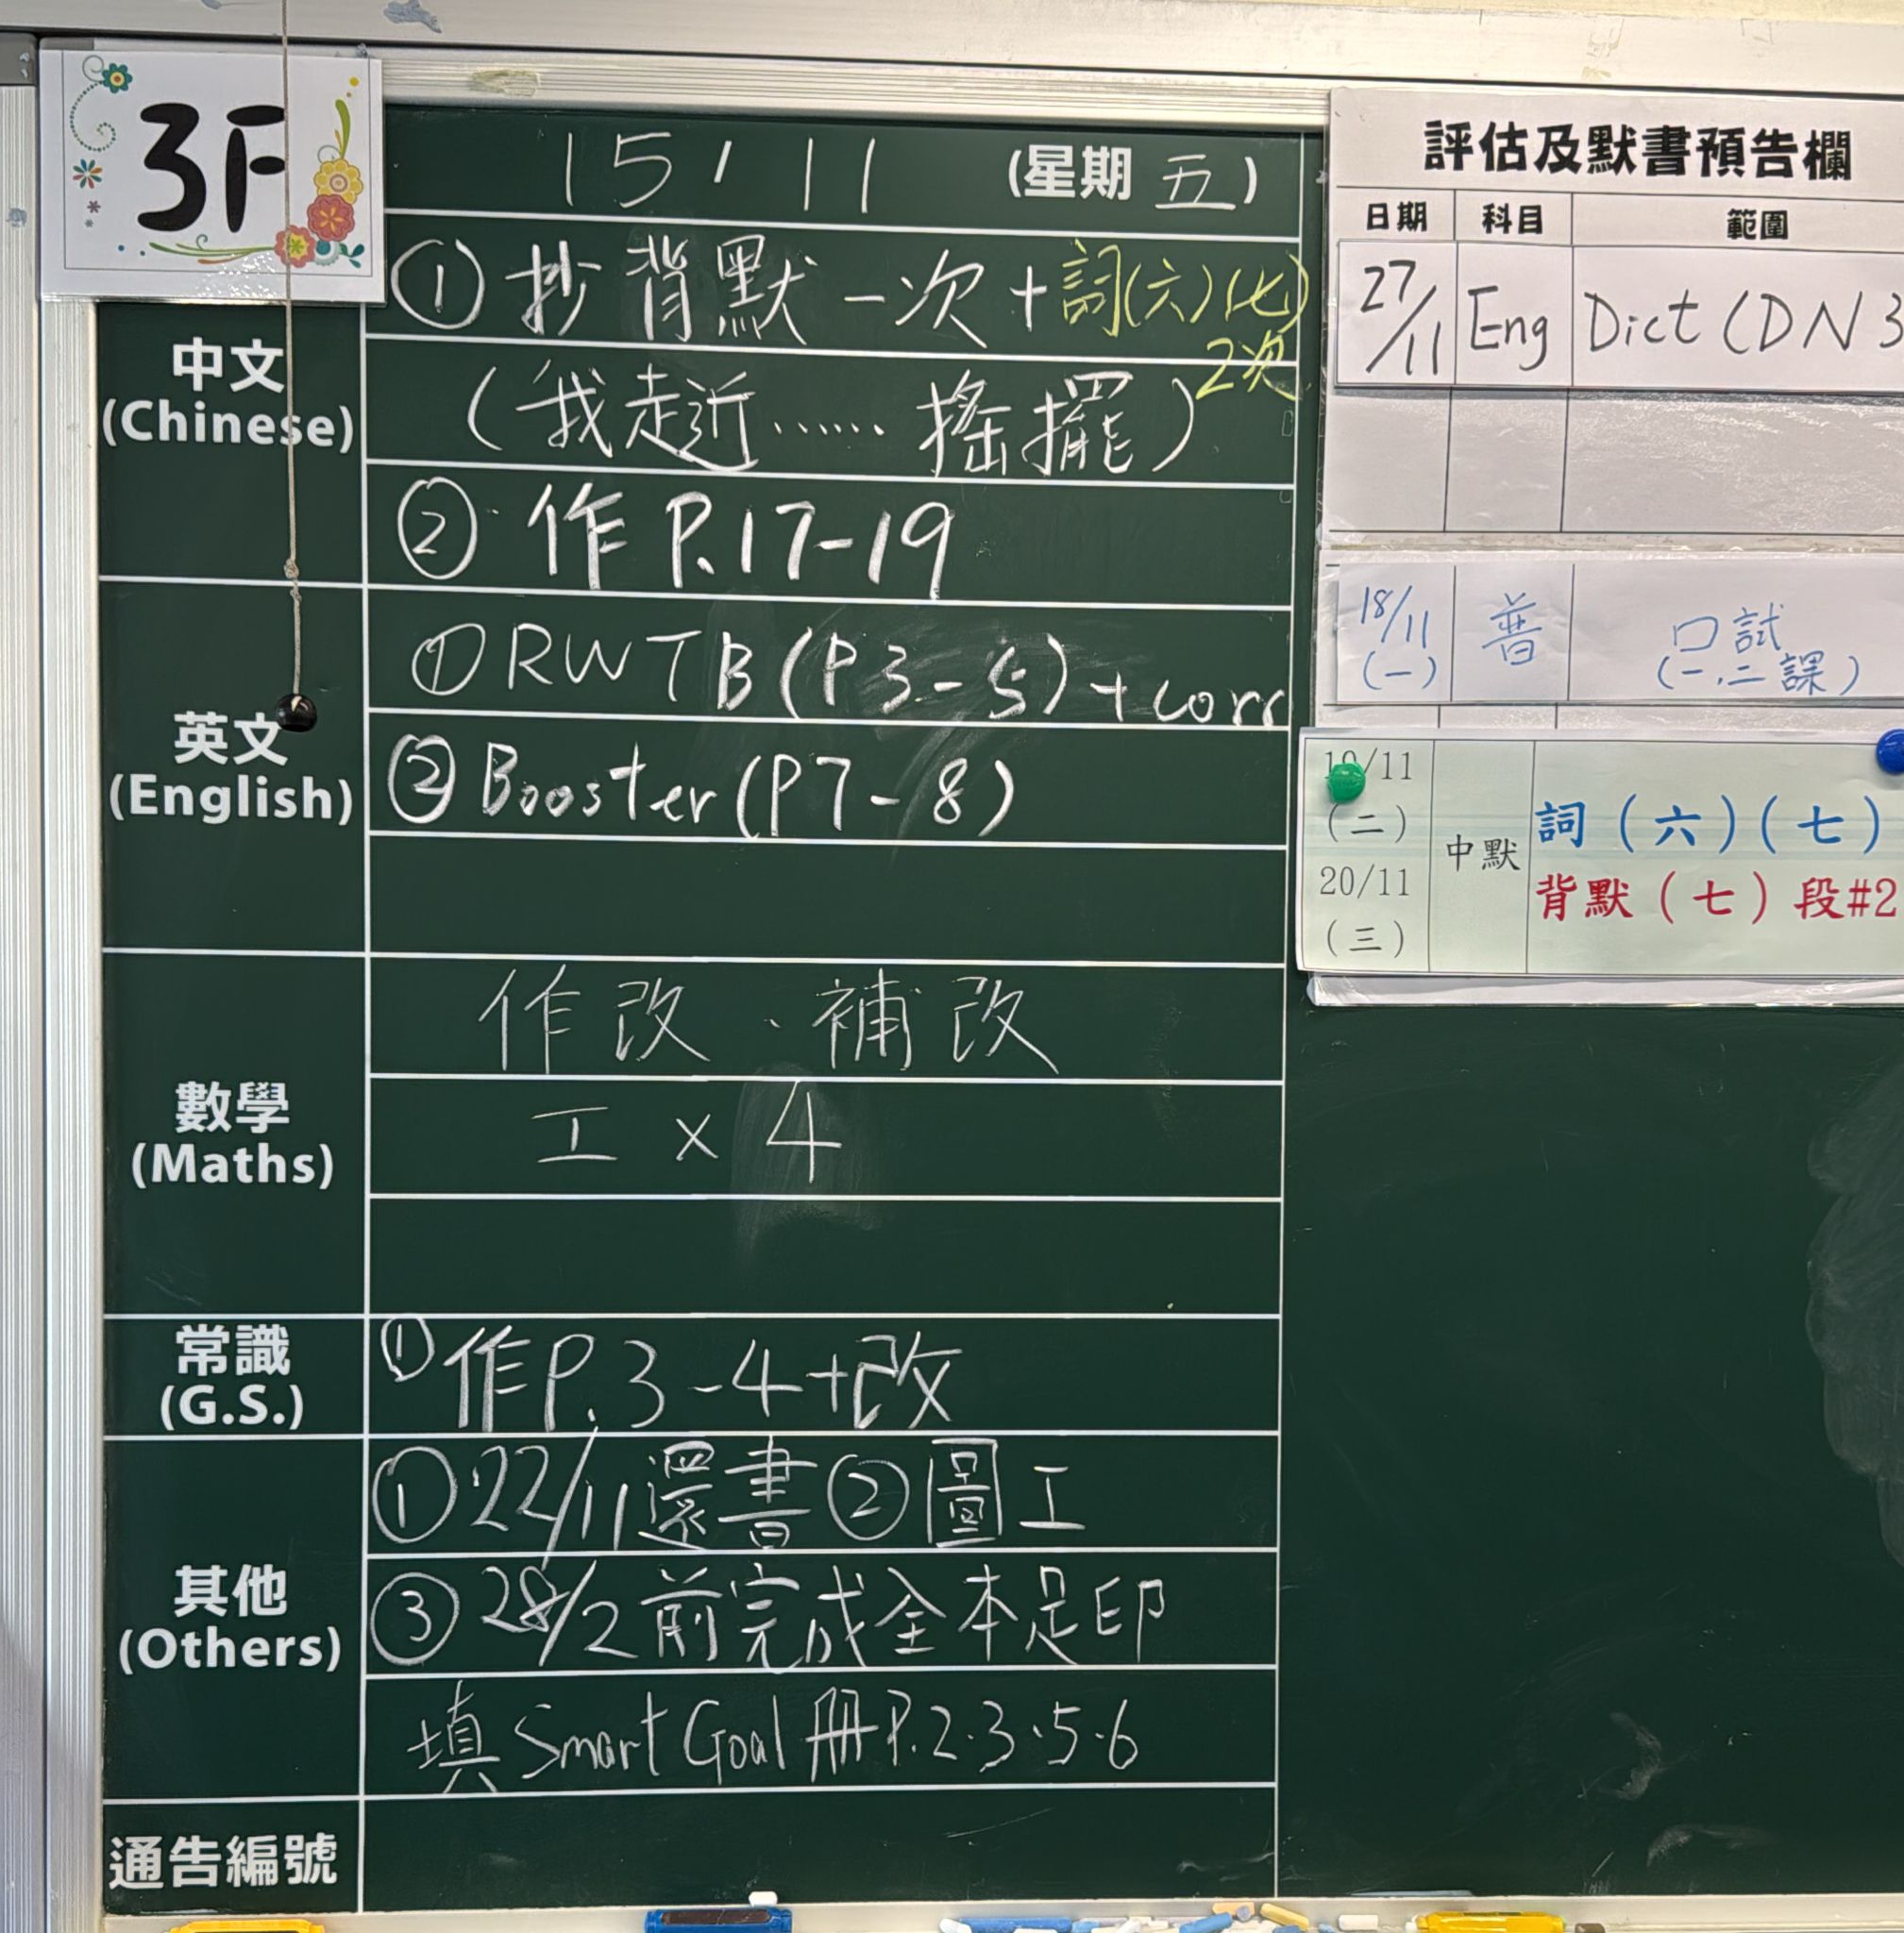 3F
15 / 11 (星期 五)
中文
(Chinese)
① 抄背默一次+詞(六)(七)
2次
(我走近……搖擺)
② 作 P.17-19
英文
(English)
① RWTB (P3-5)+corr
② Booster (P7-8)
數學
(Maths)
作改、補改
工 × 4
常識
(G.S.)
① 作P.3-4+改
其他
(Others)
① 22/11還書 ② 圖工
③ 28/2前完成全本足印
填 Smart Goal 冊P.2.3.5.6
通告編號
評估及默書預告欄
日期 科目 範圍
27/11 Eng Dict (DN3
18/11 (一) 普 口試
(一、二課)
19/11
(二)
20/11
(三)
中默
詞(六)(七)
背默(七)段#2